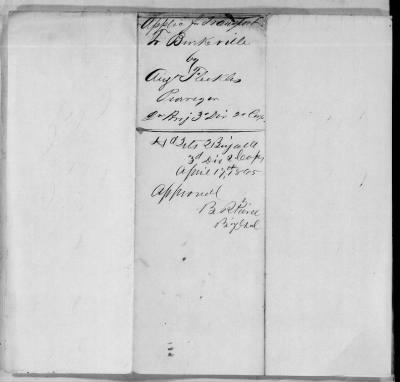 Applic for Transport
To Burkeville
by
Augs Fleckles
2d Brig 3d Div 2d Corps
Hd Qrts 2 Brigade
3d Div 2 Corps
April 17th 1865
Approved
B. R. Pierce
Brig Genl